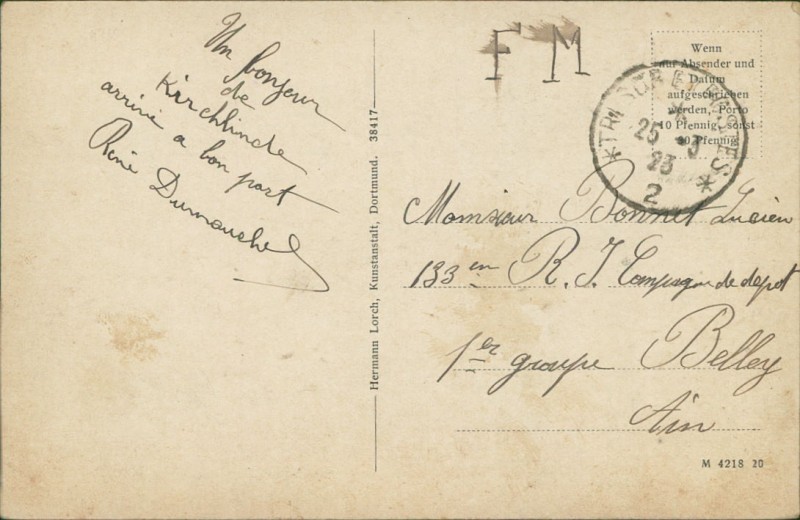 Un bonjour
de
Kirchlinde
arrivé a bon port
René Dumouchel
Hermann Lorch, Kunstanstalt, Dortmund. 38417
F M
Wenn
nur Absender und
Datum
aufgeschrieben
werden, Porto
10 Pfennig, sonst
40 Pfennig
*TRESOR ET POSTES*
25 - 3
23
2
Monsieur Bonnet Lucien
133 em R. I. Compagnie de depot
1er groupe Belley
Ain
M 4218 20